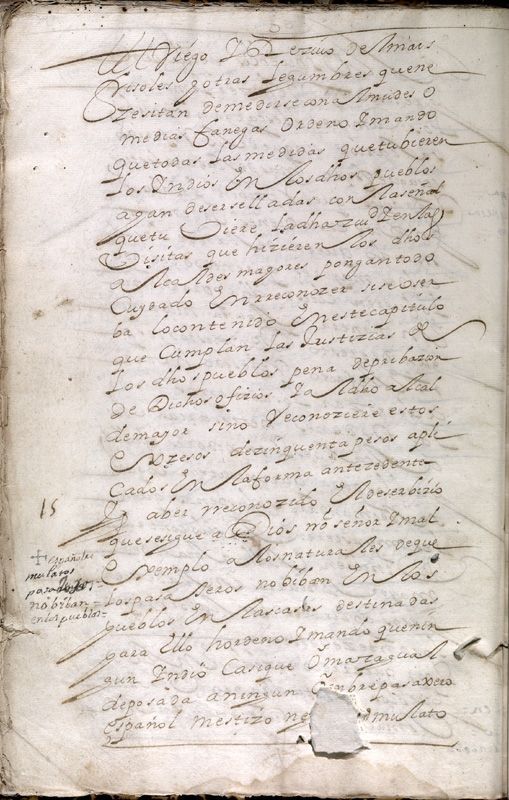 el Trigo Y
frisoles y otras legumbres quene
zesitan demedirse con Almudes O
medias fanegas Ordeno Y mando
que todas las medidas que tubieren
los Yndios En los dhos pueblos
agan deser selladas con la señal
que tu Diere la dha zud
Visitas que hizieren los dhos
Alcaldes mayores pongan todo
Cuydado En rreconozer si se Oser
ba lo contenido En este capitulo
que Cumplan las Justicias de
los dhos pueblos pena de pribazion
de Dichos ofizios Y al dho Alcal
de mayor sino reconoziere estos
Exzesos de zinquenta pesos apli
cados En la forma antezedente
15
Y aber rreconozido El deserbizio
que se sigue a Dios nro señor Y mal
Exemplo a los naturales de que
los pasaxeros no biban En los
pueblos En las casas destinadas
para Ello hordeno Y mando que nin
gun Yndio Casique O mazagual
de posada a ningun hombre pasaxero
español mestizo ne mulato
españoles
mulatos
pasaxeros
no biban
en los pueblos